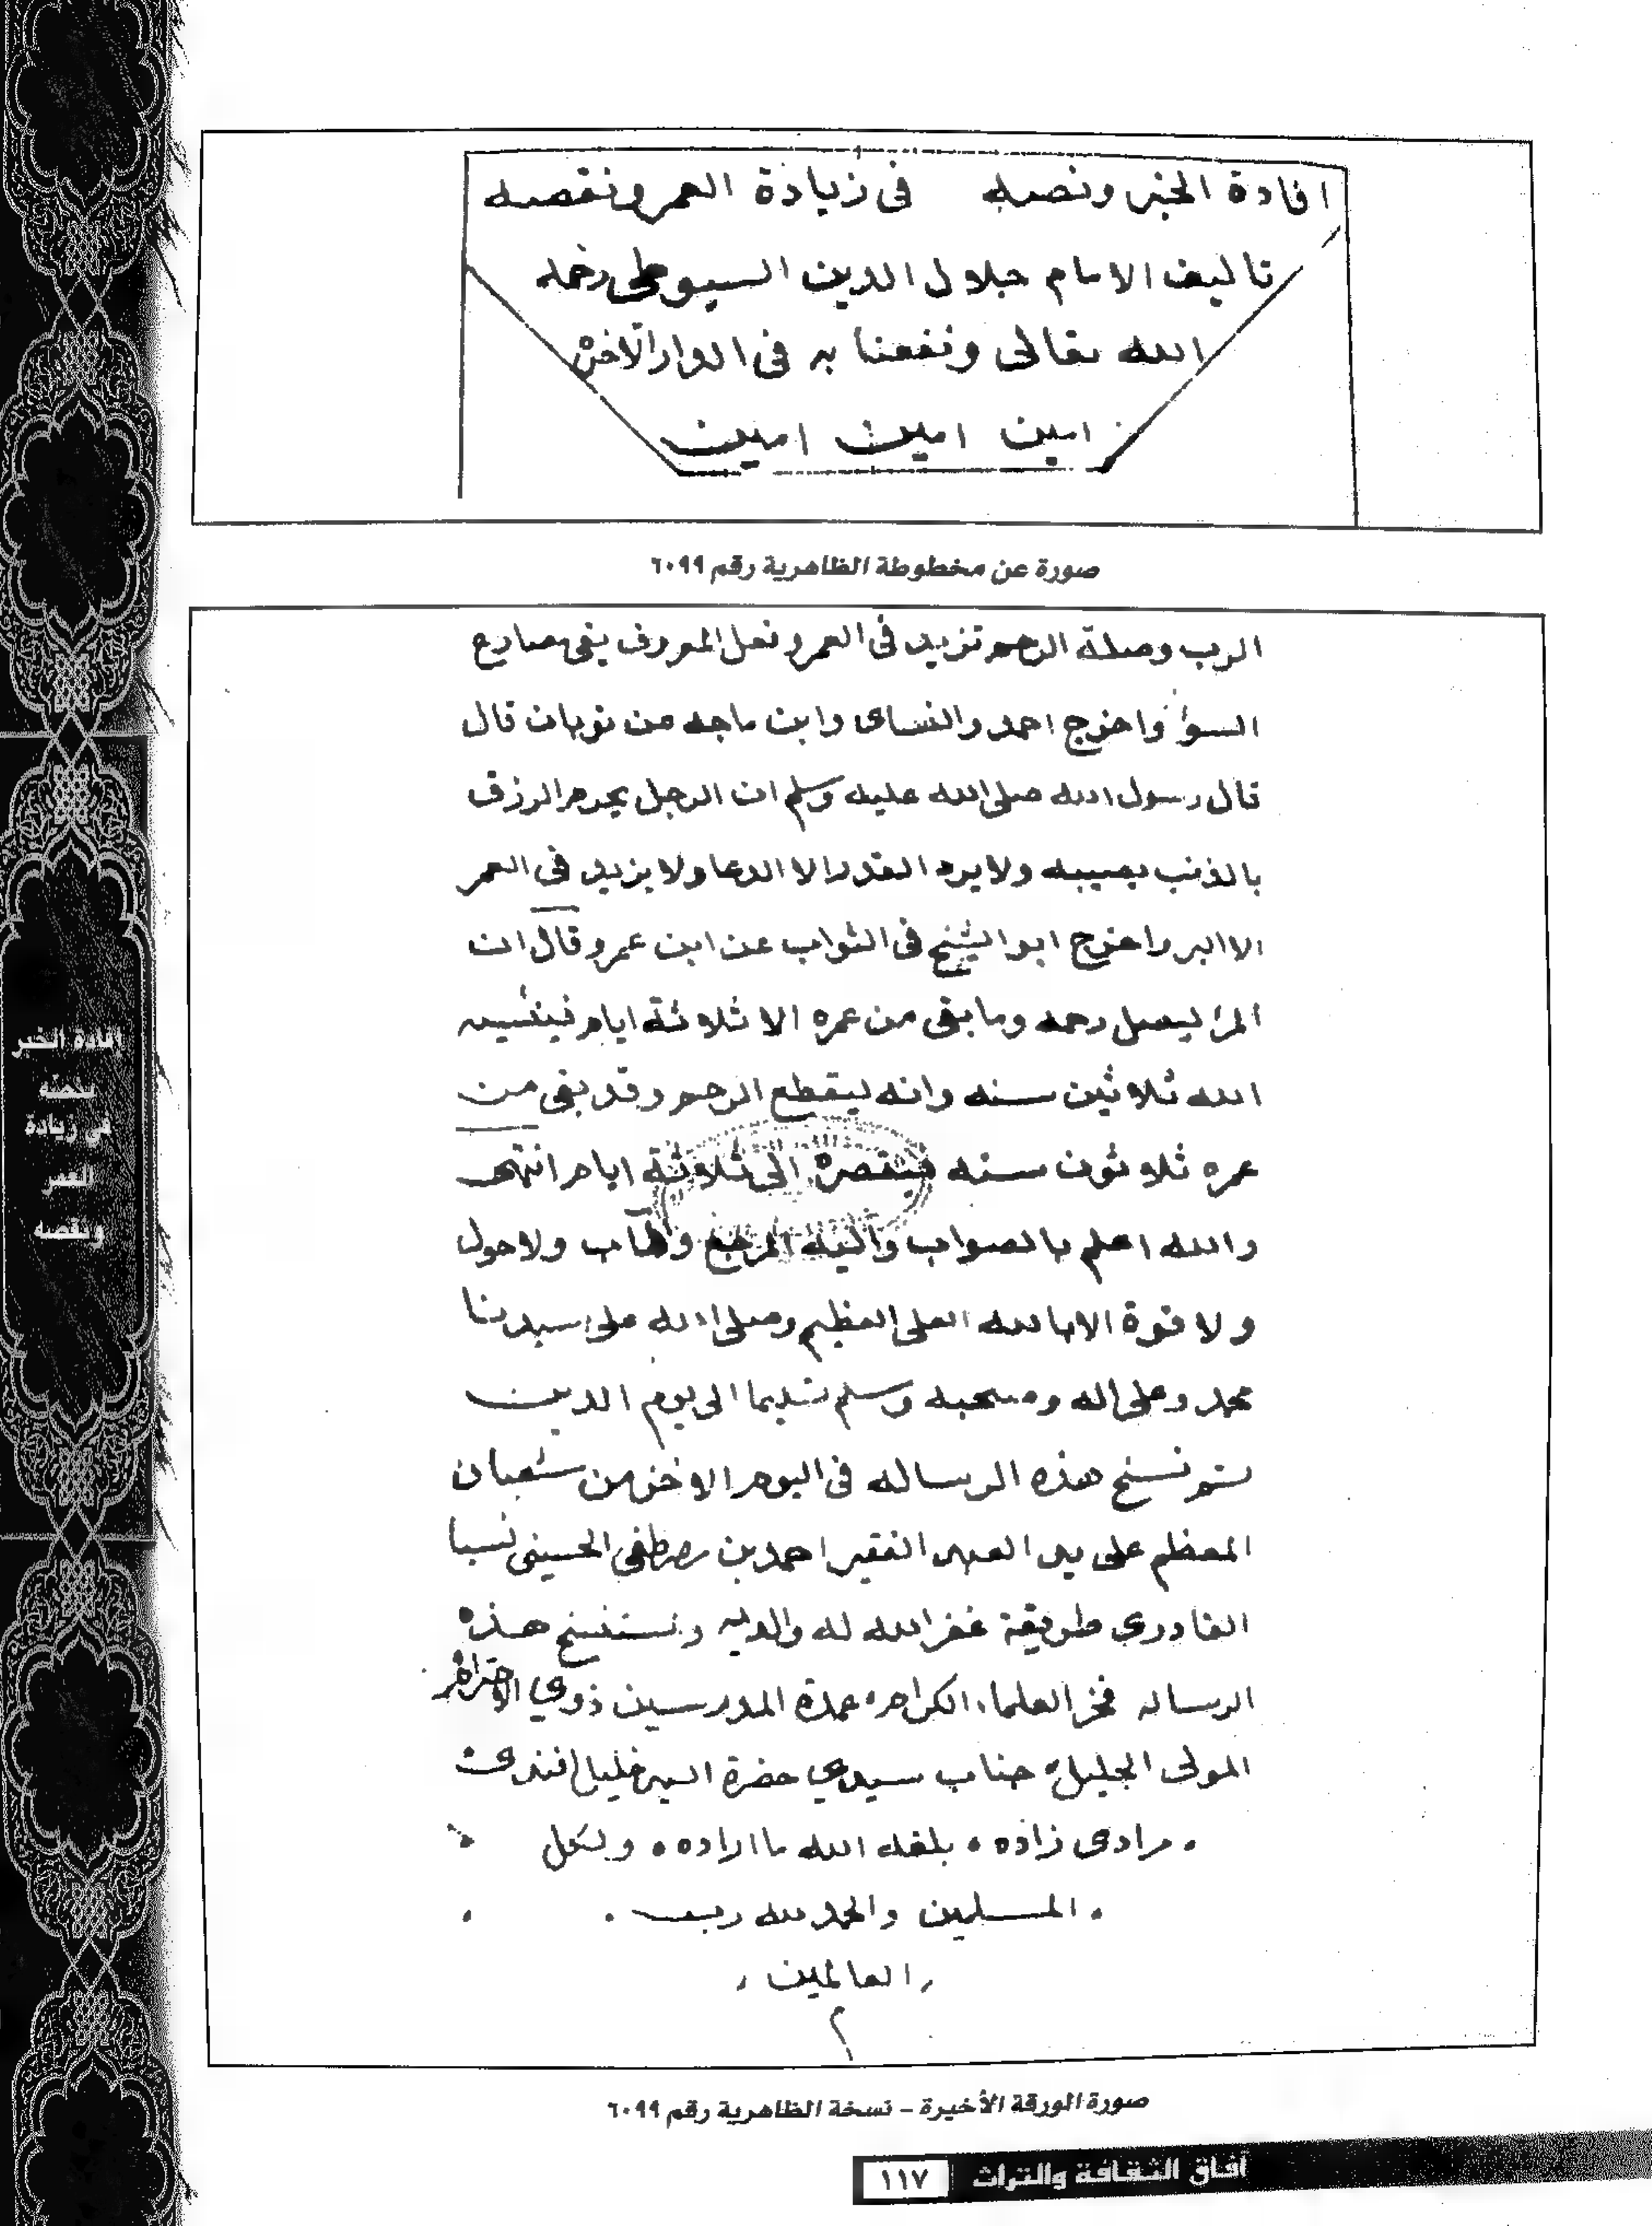 افادة الخبر ونصه في زيادة العمر ونقصه
تاليف الامام جلال الدين السيوطي رحمه
الله تعالى ونفعنا به في الدار الآخرة
امين امين امين
صورة عن مخطوطة الظاهرية رقم ٦٠٩٩
الرب وصلة الرحم تزيد في العمر وفعل المعروف يقي مصارع
السوأ واخرج احمد والنساى وابن ماجه عن ثوبان قال
قال رسول الله صلى الله عليه وسلم ان الرجل يحرم الرزق
بالذنب يصيبه ولا يرد القدر الا الدعا ولا يزيد في العمر
الا البر واخرج ابو الشيخ في الثواب عن ابن عمرو قال ان
المرأ ليصل رحمه وما بقى من عمره الا ثلاثة ايام فينسيه
الله ثلاثين سنه وانه ليقطع الرحم وقد بقى من
عمره ثلاثون سنه فينقصه الى ثلاثة ايام انتهى
والله اعلم بالصواب واليه المرجع والمآب ولا حول
ولا قوة الا بالله العلى العظيم وصلى الله على سيدنا
محمد وعلى اله وصحبه وسلم تسليما الى يوم الدين
تم نسخ هذه الرساله في اليوم الاخر من شعبان
المعظم على يد العبد الفقير احمد بن مصطفى الحسيني نسبا
القادرى طريقة غفر الله له ولوالديه واستنسخ هذه
الرساله فخر العلماء الكرام عمدة المدرسين ذوي الاحترام
المولى الجليل جناب سيدي حضرة السيد خليل افندى
مرادى زاده بلغه الله ما اراده ولكل
المسلمين والحمد لله رب
العالمين
م
صورة الورقة الأخيرة - نسخة الظاهرية رقم ٦٠٩٩
إفادة الخبر
بنصّه
في زيادة
العمر
ونقصه
آفاق الثقافة والتراث ١١٧